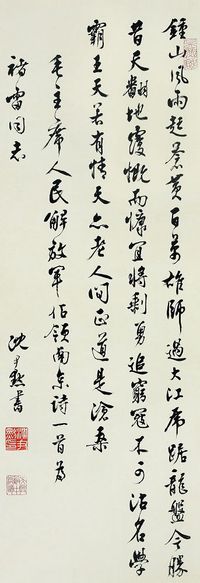 鍾山風雨起蒼黃百萬雄師過大江虎踞龍盤今勝
昔天翻地覆慨而慷宜將剩勇追窮寇不可沽名學
霸王天若有情天亦老人間正道是滄桑
毛主席人民解放軍佔領南京詩一首為
褚雷同志
沈尹默書